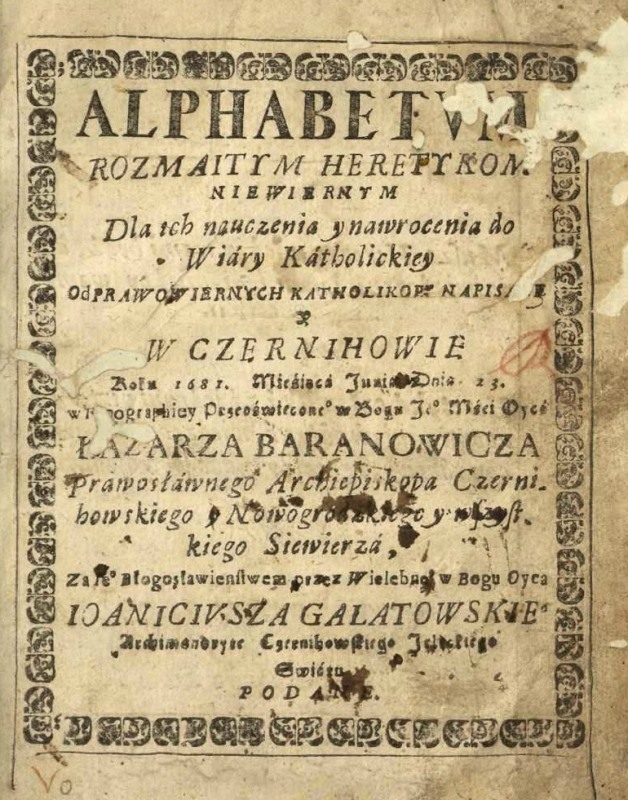 ALPHABETVM
ROZMAITYM HERETYKOM.
NIEWIERNYM
Dla ich nauczenia y nawrocenia do
Wiáry Kátholickiey
Od PRAWOWIERNYCH KATHOLIKOW NAPISANE
Y
W CZERNIHOWIE
Roku 1681. Miesiącá Junia Dnia 23.
w Typographiey Przeoświecone° w Bogu Je° Mości Oycá
ŁAZARZA BARANOWICZA
Prawosłáwnego Archiepiskopa Czerni-
howskiego y Nowogrodzkiego y wszyst-
kiego Siewierzá,
Za Je° Błogosławieństwem przez Wielebne° w Bogu Oyca
IOANICIVSZA GALATOWSKIE°
Archimandrytę Czernihowskiego Jeleckiego
PODANE.
Vo